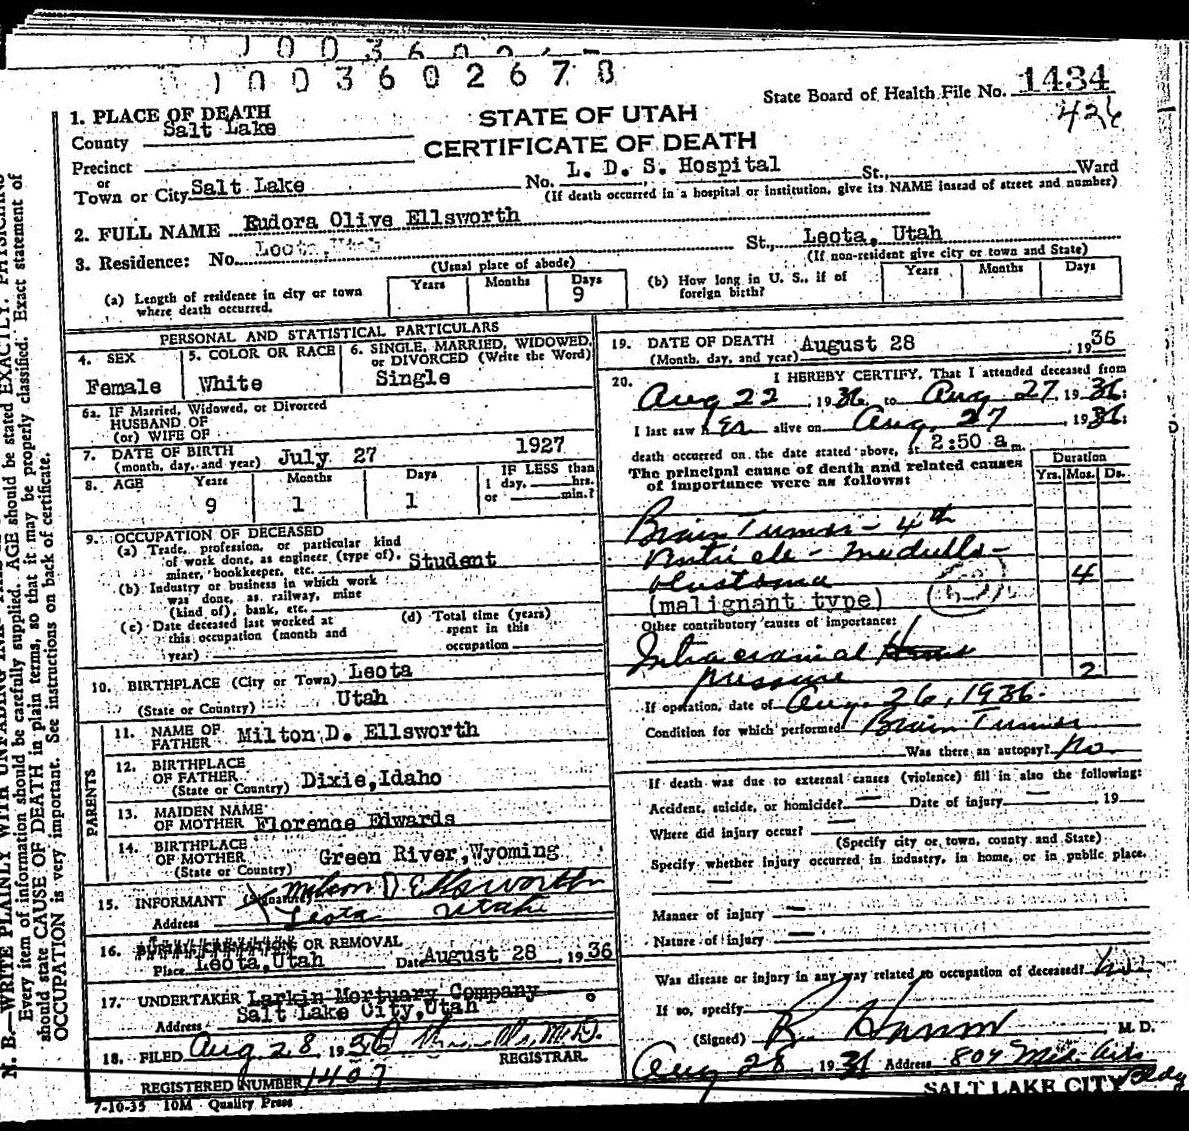 1003602678
State Board of Health File No. 1434
426
STATE OF UTAH
CERTIFICATE OF DEATH
1. PLACE OF DEATH
County Salt Lake
Precinct
or
Town or City Salt Lake No. L. D. S. Hospital St., Ward
(If death occurred in a hospital or institution, give its NAME insead of street and number)
2. FULL NAME Eudora Olive Ellsworth
3. Residence: No. Leota, Utah St., Leota, Utah
(Usual place of abode) (If non-resident give city or town and State)
(a) Length of residence in city or town where death occurred. Years Months Days 9
(b) How long in U. S., if of foreign birth? Years Months Days
PERSONAL AND STATISTICAL PARTICULARS
4. SEX Female
5. COLOR OR RACE White
6. SINGLE, MARRIED, WIDOWED, or DIVORCED (Write the Word) Single
6a. IF Married, Widowed, or Divorced
HUSBAND OF
(or) WIFE OF
7. DATE OF BIRTH (month, day, and year) July 27 1927
8. AGE Years 9 Months 1 Days 1 IF LESS than 1 day, hrs. or min.?
9. OCCUPATION OF DECEASED
(a) Trade, profession, or particular kind of work done, as engineer (type of), miner, bookkeeper, etc. Student
(b) Industry or business in which work was done, as railway, mine (kind of), bank, etc.
(c) Date deceased last worked at this occupation (month and year)
(d) Total time (years) spent in this occupation
10. BIRTHPLACE (City or Town) Leota
(State or Country) Utah
PARENTS
11. NAME OF FATHER Milton D. Ellsworth
12. BIRTHPLACE OF FATHER (State or Country) Dixie, Idaho
13. MAIDEN NAME OF MOTHER Florence Edwards
14. BIRTHPLACE OF MOTHER (State or Country) Green River, Wyoming
15. INFORMANT (Signature) Milton D Ellsworth
Address Leota Utah
16. OR REMOVAL
Place Leota, Utah Date August 28, 1936
17. UNDERTAKER Larkin Mortuary Company
Address Salt Lake City, Utah
18. FILED Aug 28 1936 M.D. REGISTRAR.
REGISTERED NUMBER 1407
7-10-35 10M Quality Press
19. DATE OF DEATH (Month, day, and year) August 28, 1936
20. I HEREBY CERTIFY, That I attended deceased from
Aug 22, 1936, to Aug 27, 1936;
I last saw her alive on Aug. 27, 1936;
death occurred on the date stated above, at 2:50 a m.
The principal cause of death and related causes of importance were as follows: Duration Yrs. Mos. Ds.
Brain Tumor - 4th
Ventricle - Medullo-
blastoma 4
(malignant type)
Other contributory causes of importance:
Intracranial
pressure 2
If operation, date of Aug. 26, 1936.
Condition for which performed Brain Tumor
Was there an autopsy? no
If death was due to external causes (violence) fill in also the following:
Accident, suicide, or homicide? — Date of injury — 19
Where did injury occur? —
(Specify city or town, county and State)
Specify whether injury occurred in industry, in home, or in public place.
—
Manner of injury —
Nature of injury —
Was disease or injury in any way related to occupation of deceased? No.
If so, specify
(Signed) M. D.
Aug 28 1936 Address 804 Med. Arts Bldg
SALT LAKE CITY
N. B.—WRITE PLAINLY WITH UNFADING INK
Every item of information should be carefully supplied. AGE should be stated EXACTLY. PHYSICIANS
should state CAUSE OF DEATH in plain terms, so that it may be properly classified. Exact statement of
OCCUPATION is very important. See instructions on back of certificate.